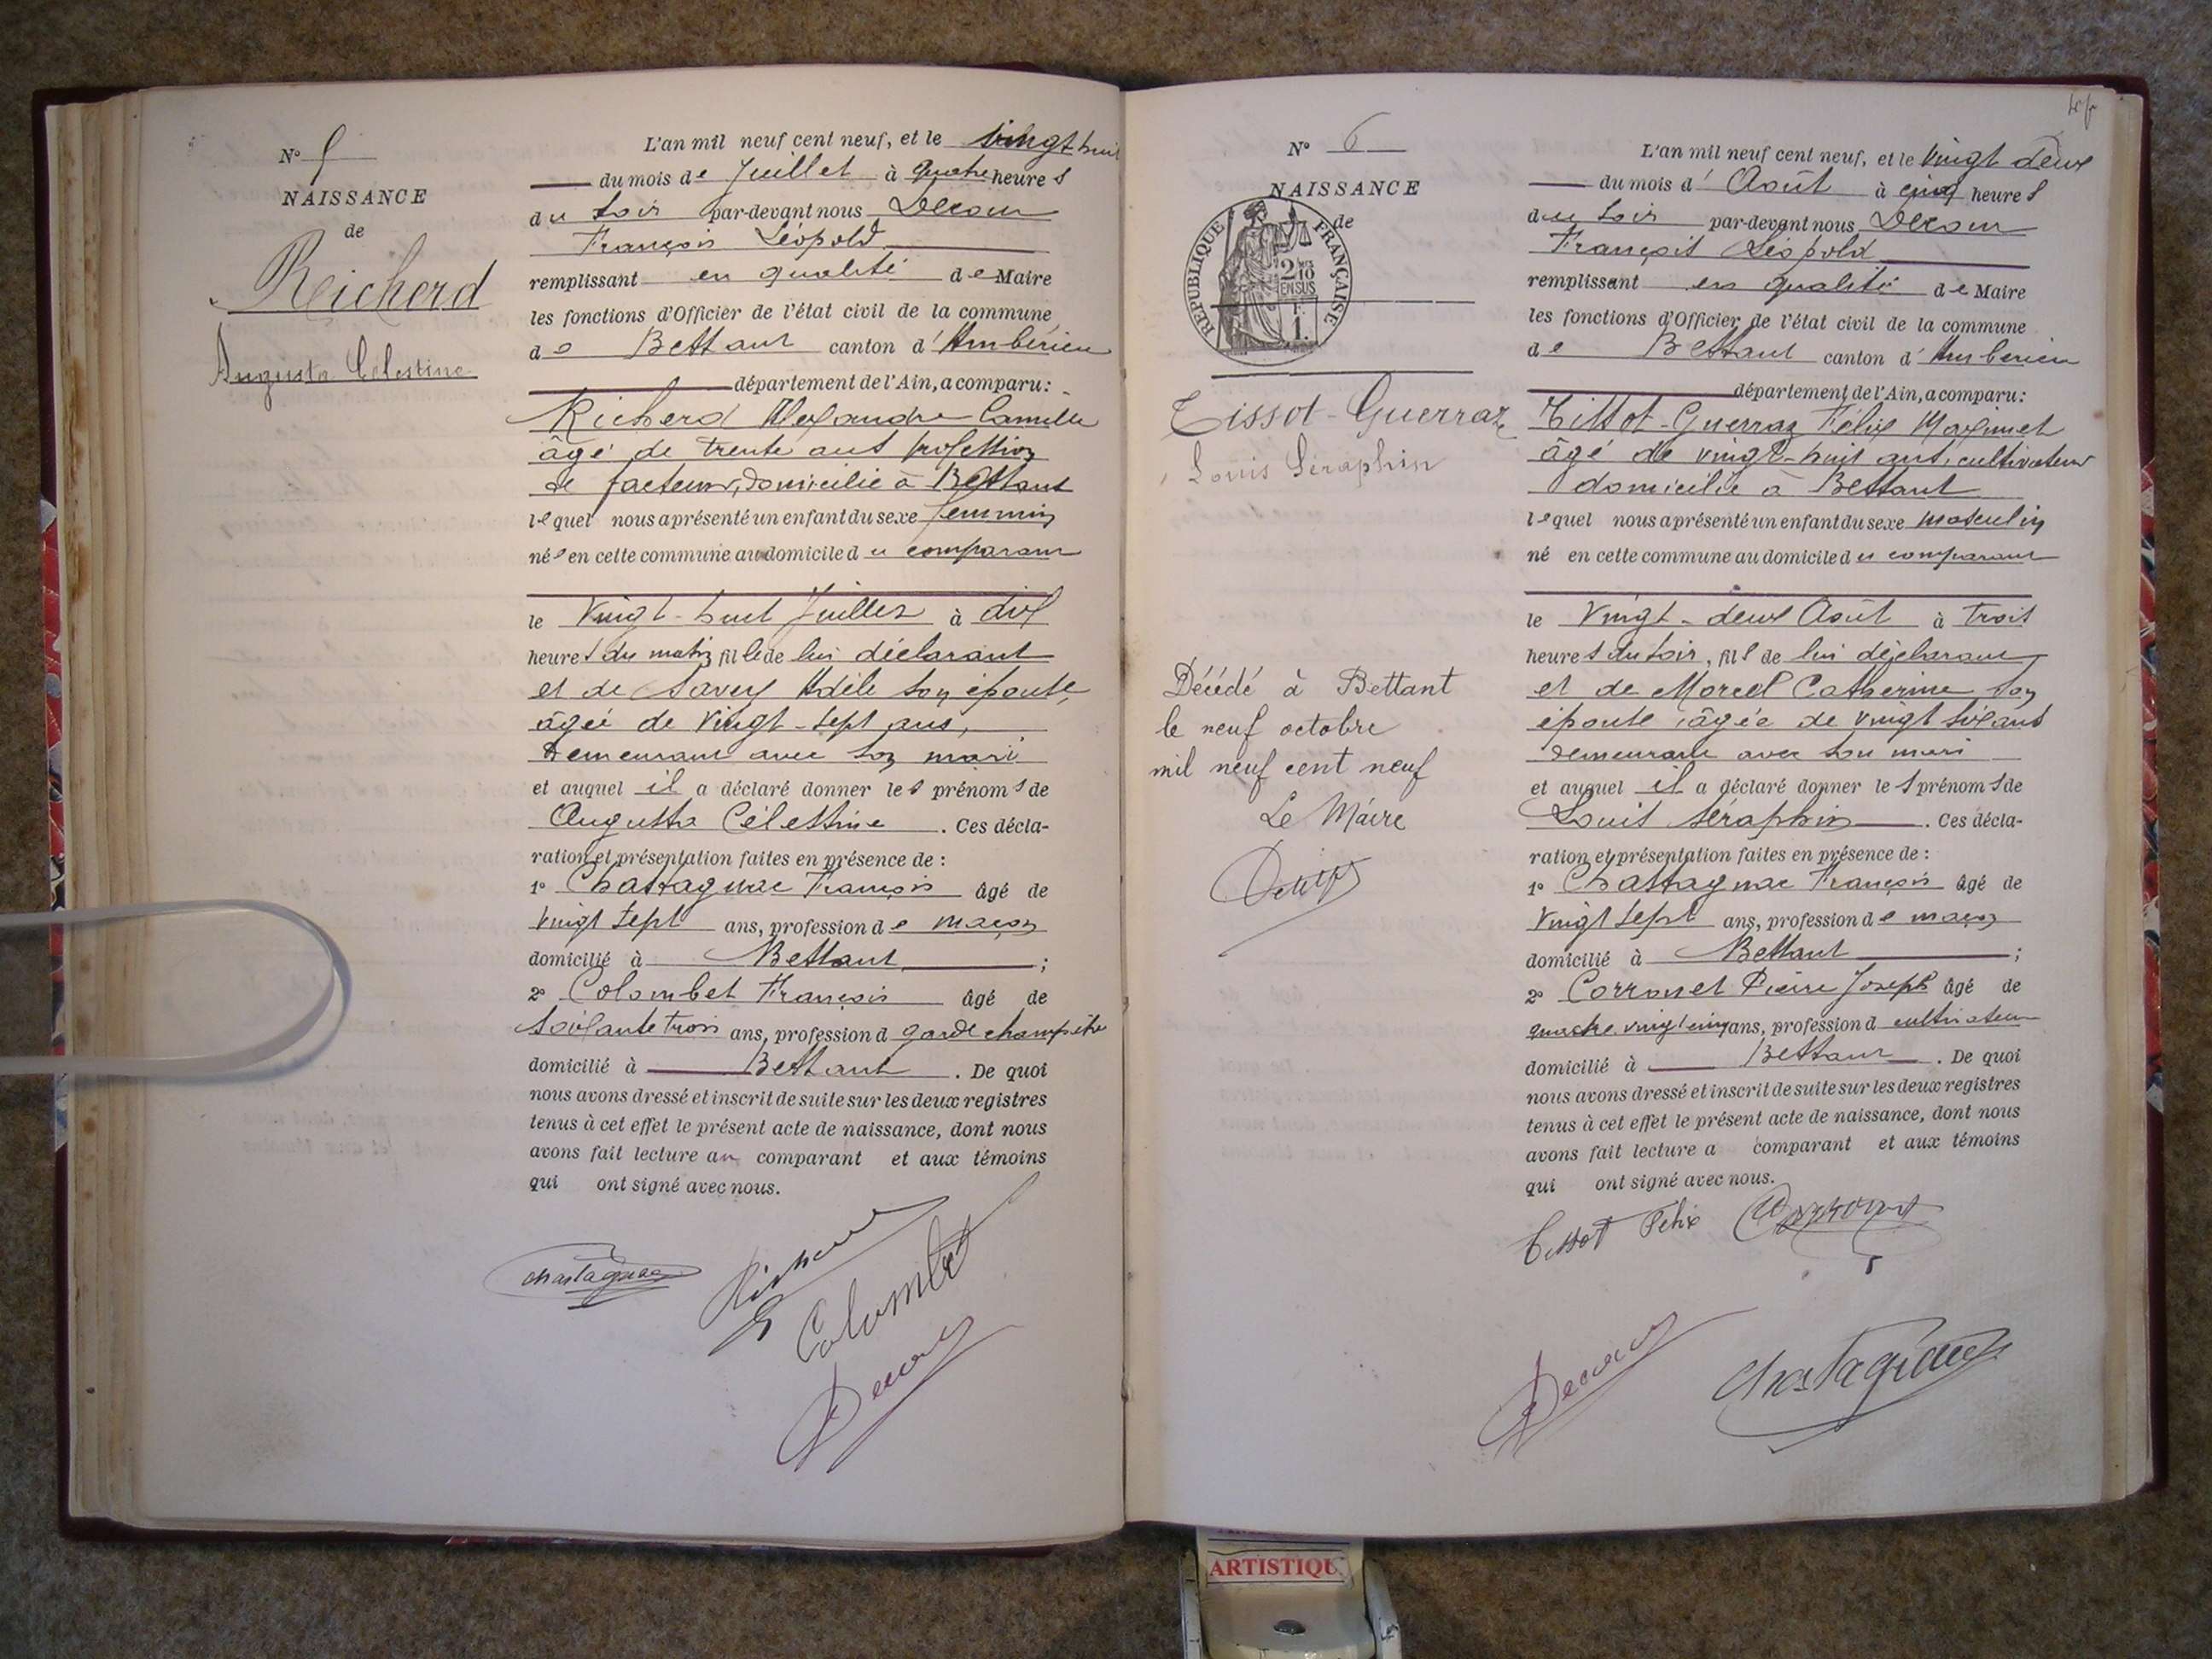 N° 5
NAISSANCE
de
Reicherd
Augusta Célestine
L'an mil neuf cent neuf, et le vingt huit
du mois de Juillet à quatre heures
du soir par-devant nous Decour
François Léopold
remplissant en qualité de Maire
les fonctions d'Officier de l'état civil de la commune
de Bettant canton d'Ambérieu
département de l'Ain, a comparu:
Richerd Alexandre Camille
âgé de trente ans profession
de facteur, domicilié à Bettant
lequel nous a présenté un enfant du sexe feminin
née en cette commune au domicile du comparant
le Vingt-huit Juillet à dix
heures du matin fille de lui déclarant
et de Savey Adèle son épouse,
âgée de vingt-sept ans,
demeurant avec son mari
et auquel il a déclaré donner les prénoms de
Augusta Célestine. Ces décla-
ration et présentation faites en présence de :
1° Chastagnac François âgé de
vingt sept ans, profession de maçon
domicilié à Bettant ;
2° Colombet François âgé de
soixante trois ans, profession d garde champêtre
domicilié à Bettant. De quoi
nous avons dressé et inscrit de suite sur les deux registres
tenus à cet effet le présent acte de naissance, dont nous
avons fait lecture au comparant et aux témoins
qui ont signé avec nous.
Chastagnac
Richerd
Colombet
Decour
N° 6
NAISSANCE
de
REPUBLIQUE FRANÇAISE
2/10
EN SUS
1 F.
Tissot-Guerraz
Louis Séraphin
Décédé à Bettant
le neuf octobre
mil neuf cent neuf
Le Maire
L'an mil neuf cent neuf, et le vingt deux
du mois d'Août à cinq heures
du soir par-devant nous Decour
François Léopold
remplissant en qualité de Maire
les fonctions d'Officier de l'état civil de la commune
de Bettant canton d'Ambérieu
département de l'Ain, a comparu:
Tissot-Guerraz Félix Maximet
âgé de vingt-huit ans, cultivateur
domicilié à Bettant
lequel nous a présenté un enfant du sexe masculin
né en cette commune au domicile du comparant
le Vingt-deux Août à trois
heures du soir, fils de lui déclarant
et de Morcel Catherine son
épouse, âgée de vingt six ans
demeurant avec son mari
et auquel il a déclaré donner les prénoms de
Louis Séraphin. Ces décla-
ration et présentation faites en présence de :
1° Chastagnac François âgé de
vingt sept ans, profession de maçon
domicilié à Bettant ;
2° Corronet Pierre Joseph âgé de
quatre vingt cinq ans, profession d cultivateur
domicilié à Bettant. De quoi
nous avons dressé et inscrit de suite sur les deux registres
tenus à cet effet le présent acte de naissance, dont nous
avons fait lecture a comparant et aux témoins
qui ont signé avec nous.
Tissot Félix
Decour
Chastagnac
ARTISTIQU